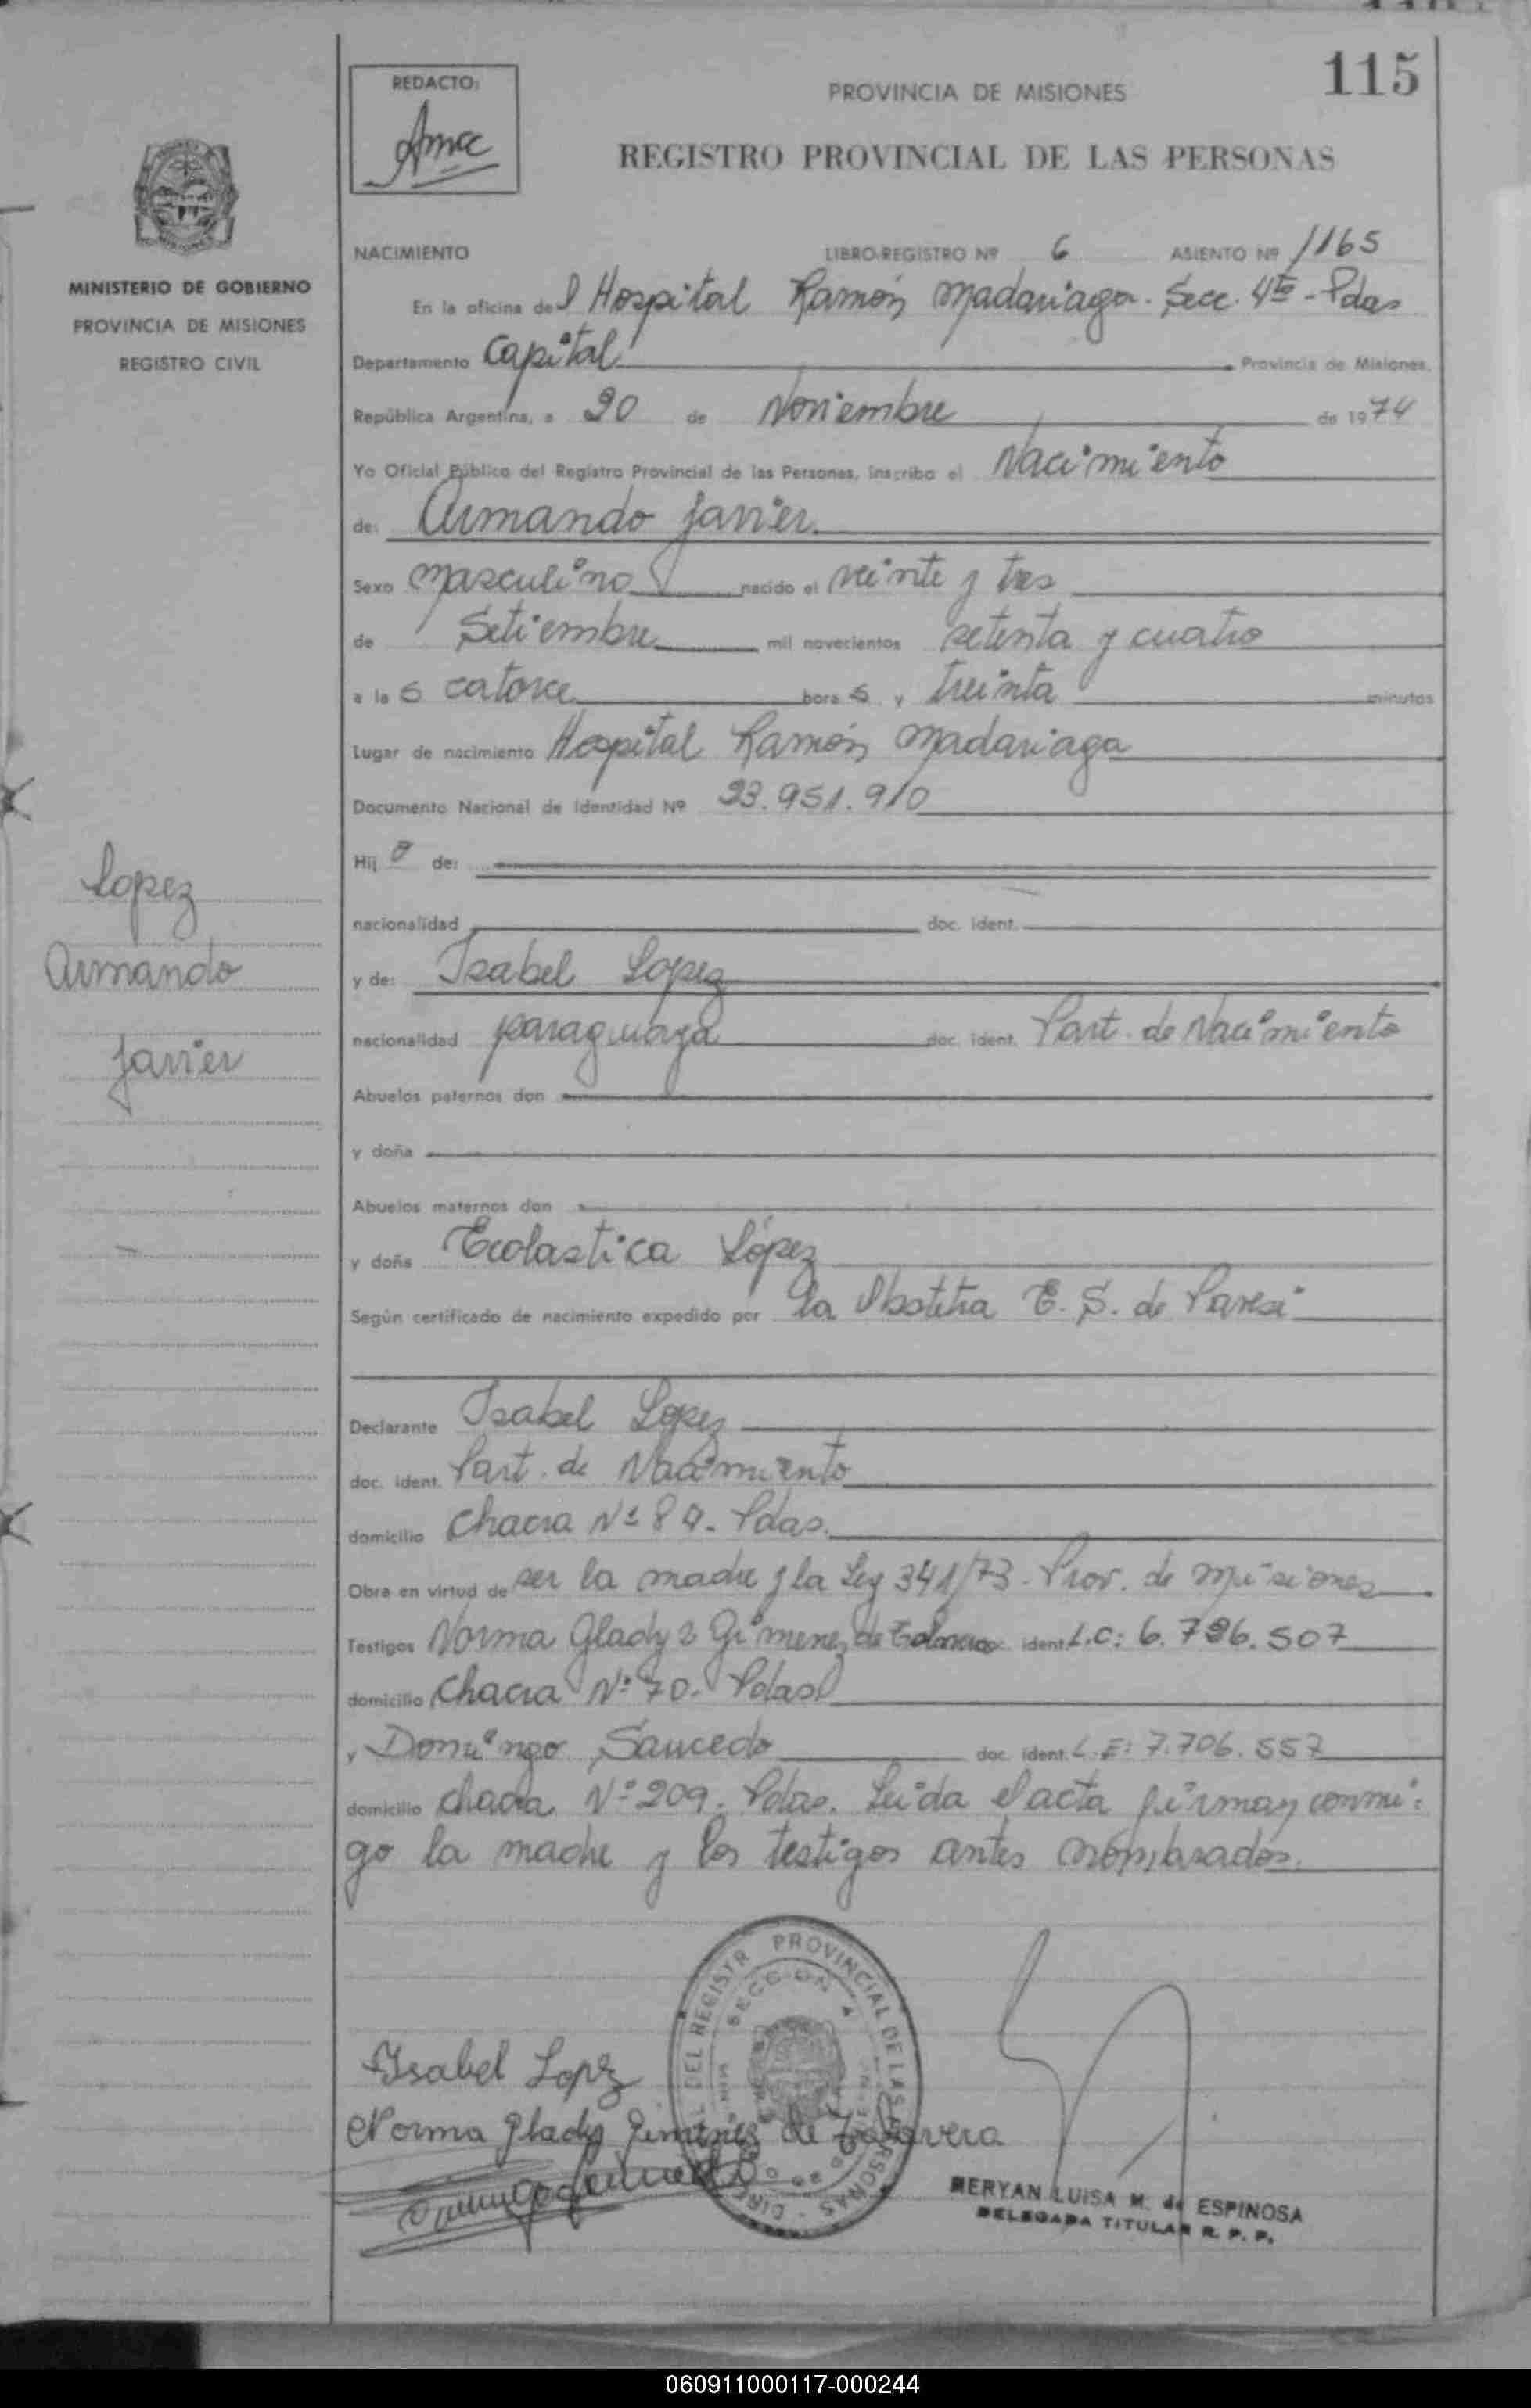 115
REDACTO:
PROVINCIA DE MISIONES
REGISTRO PROVINCIAL DE LAS PERSONAS
MINISTERIO DE GOBIERNO
PROVINCIA DE MISIONES
REGISTRO CIVIL
NACIMIENTO LIBRO-REGISTRO Nº 6 ASIENTO Nº 1165
En la oficina del Hospital Ramón Madariaga. Secc. 4ta - Pdas
Departamento Capital Provincia de Misiones.
República Argentina, a 20 de Noviembre de 1974
Yo Oficial Público del Registro Provincial de las Personas, inscribo el Nacimiento
de: Armando Javier
Sexo masculino nacido el veinte y tres
de Setiembre mil novecientos setenta y cuatro
a las catorce horas y treinta minutos
Lugar de nacimiento Hospital Ramón Madariaga
Documento Nacional de Identidad Nº 23.951.910
Hijo de:
nacionalidad doc. ident.
y de: Isabel Lopez
nacionalidad paraguaya doc. ident. Part. de Nacimiento
Abuelos paternos don
y doña
Abuelos maternos don
y doña Ecolastica López
Según certificado de nacimiento expedido por la Obstetra E. S. de
Declarante Isabel Lopez
doc. ident. Part. de Nacimiento
domicilio Chacra Nº Pdas.
Obra en virtud de ser la madre y la Ley 341/73 - Prov. de Misiones
Testigos Norma Glady Gimenez de ident. L.C: 6.796.507
domicilio Chacra Nº 70. Pdas
y Domingo Saucedo doc. ident. L.E: 7.706.557
domicilio chacra Nº 209. Pdas. Leida el acta firman conmi-
go la madre y los testigos antes nombrados.
Lopez
Armando
Javier
DEL REGISTR PROVINCIAL DE LAS PERSONAS
SECCION 4
Isabel Lopez
Norma Glady Jimenez de Talavera
MERYAN LUISA M. de ESPINOSA
DELEGADA TITULAR R. P. P.
060911000117-000244